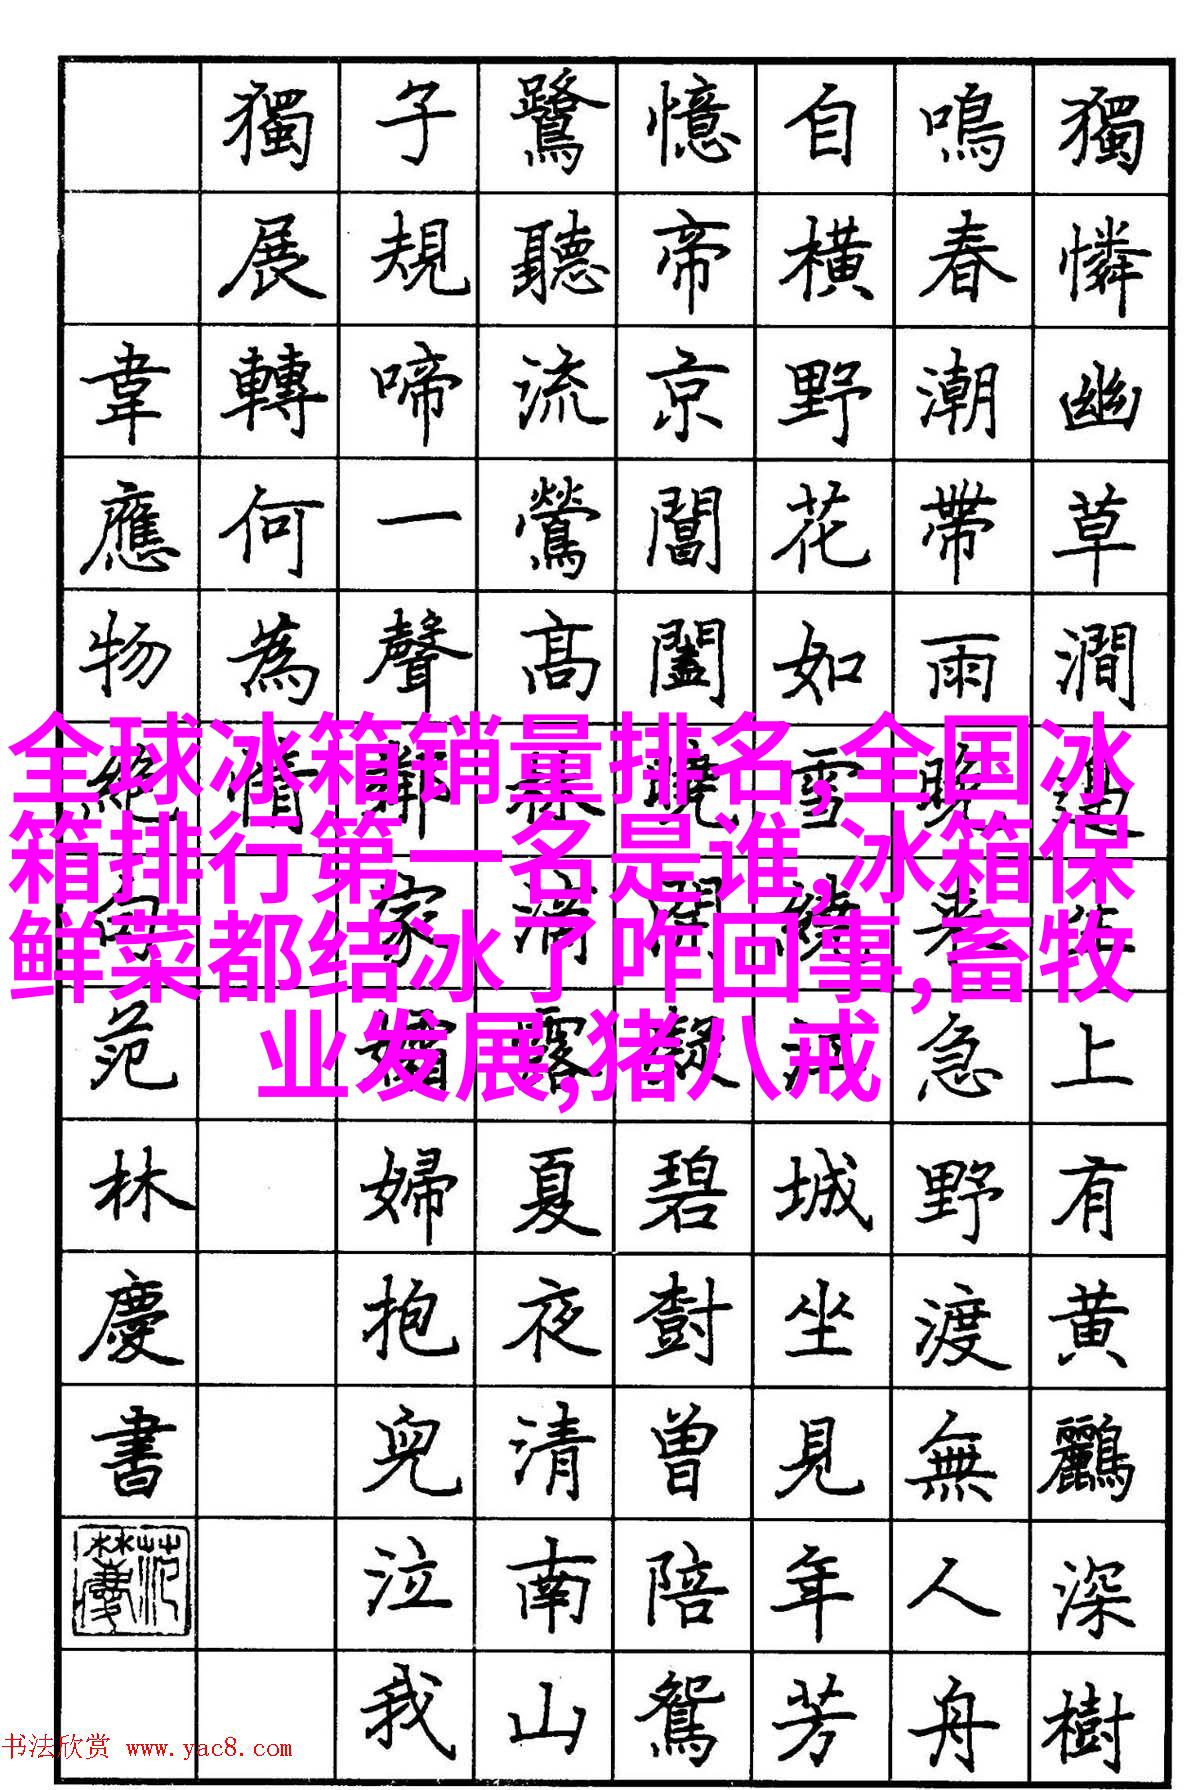 獨憐幽草澗邊生上有黄鸝深樹
鳴春潮帶雨晚来急野渡無人舟
自橫野花如雪繞江城坐見年芳
憶帝京閶闔曉開凝碧樹曾陪鴛
鷺聽流鶯高林滴露夏夜清南山
子規啼一聲鄰家孀婦抱兒泣我
獨展轉何為情
韋應物絶句范林慶書
全球冰箱销量排名,全国冰
箱排行第一名是谁,冰箱保
鲜菜都结冰了咋回事,畜牧
业发展,猪八戒
书法欣赏 www.yac8.com